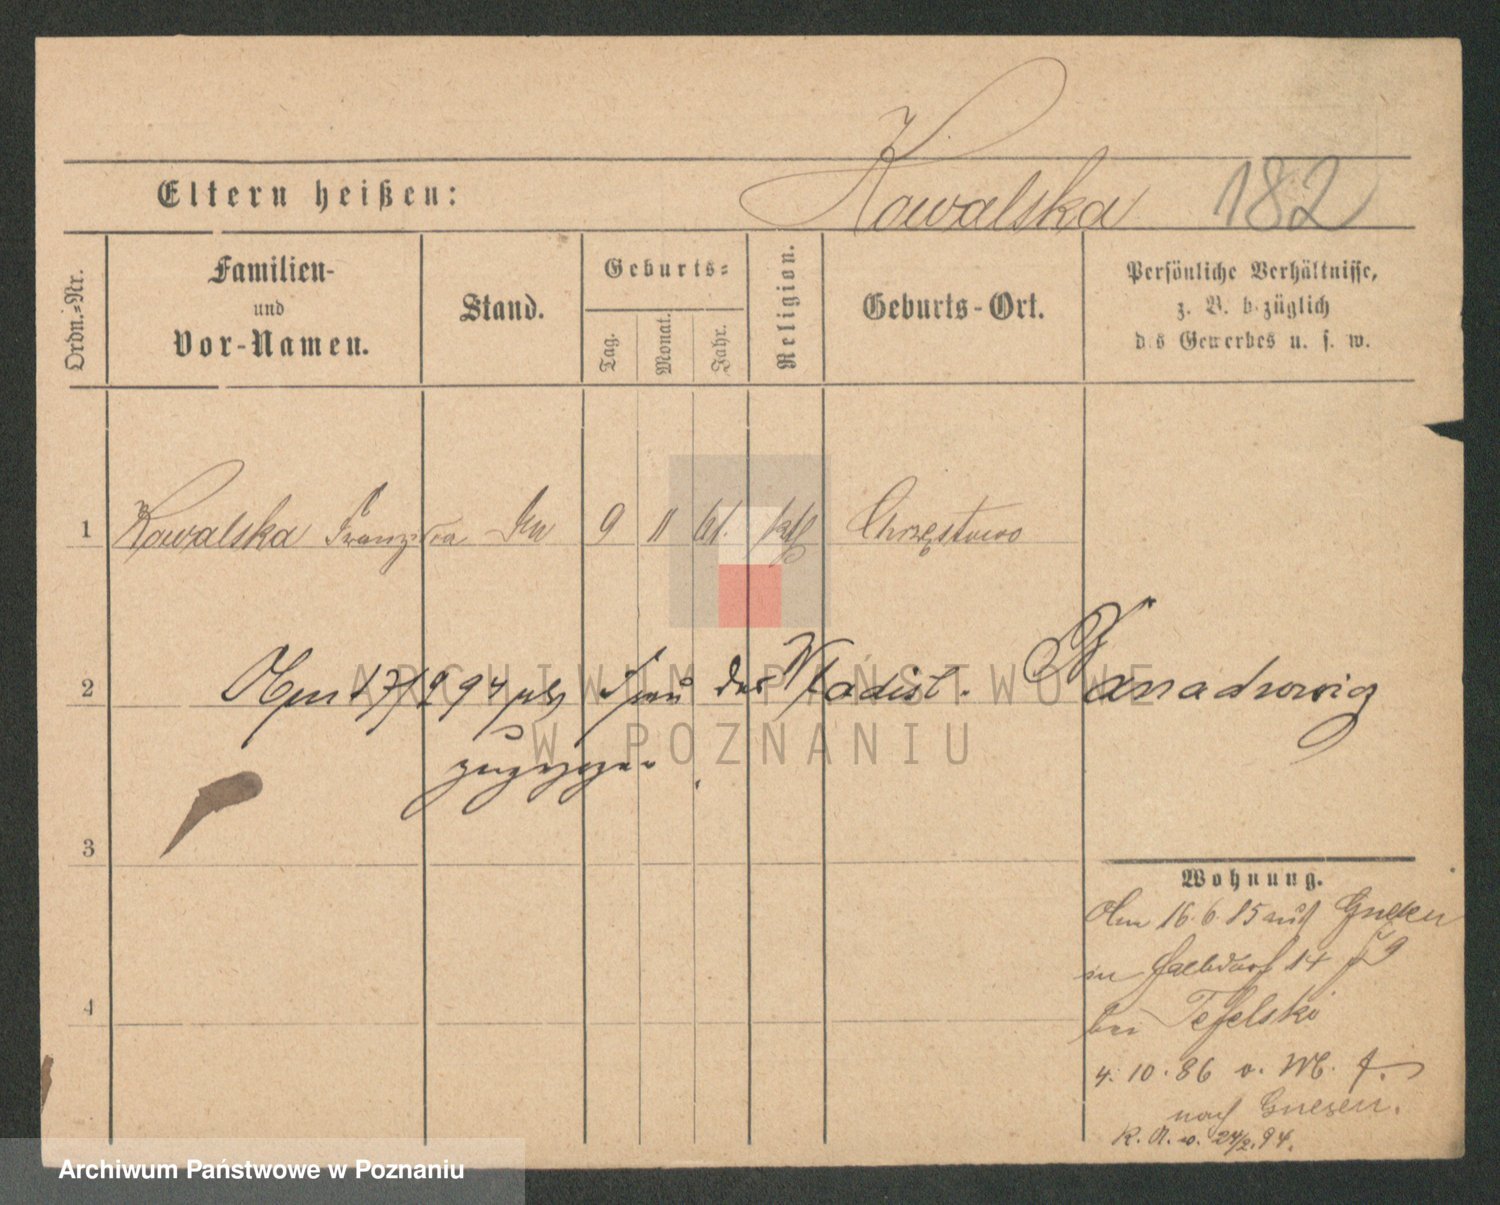 Kowalska 182
Eltern heißen:
Ordn.=Nr.
Familien-
und
Vor-Namen.
Stand.
Geburts=
Tag.
Monat.
Jahr.
Religion.
Geburts-Ort.
Persönliche Verhältnisse,
z. B. b züglich
d s Gewerbes u. s. w.
1 Kowalska Franziska 9 11 61. ktl Chrzęstowo
2 Am 17/2 94 als Frau des Wladisl.
zugezogen
3
4
Wohnung.
Am 16. 6. 85 aus Gnesen
in Halbdorf 14
bei Tefelski
4. 10. 86 v.
nach Gnesen.
K. A. v. 24/2. 94.
ARCHIWUM PAŃSTWOWE
W POZNANIU
Archiwum Państwowe w Poznaniu